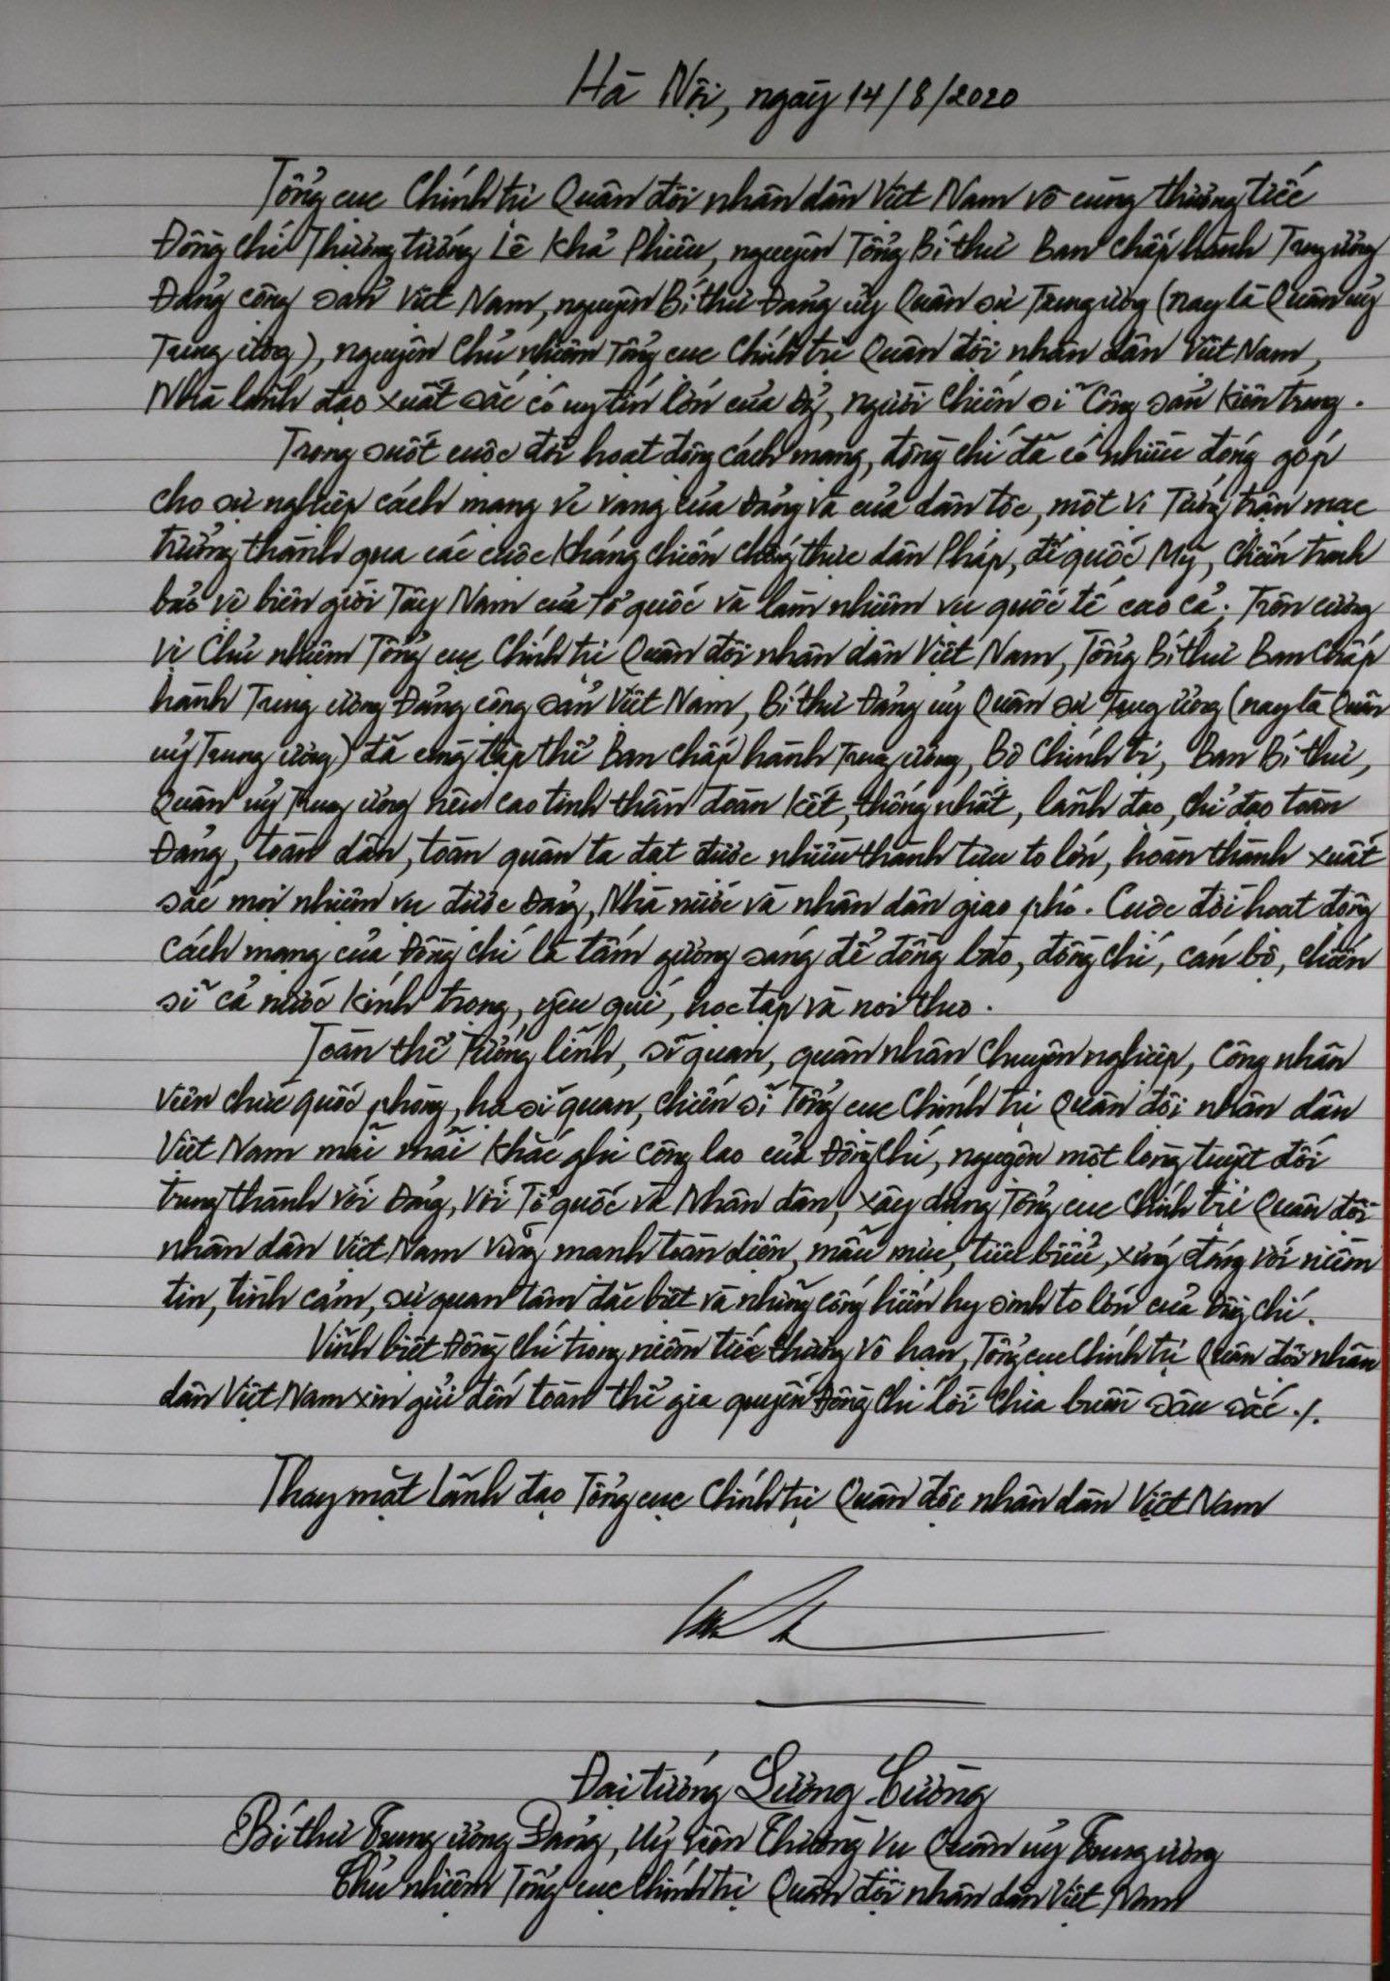 Hà Nội, ngày 14/8/2020
Tổng cục Chính trị Quân đội nhân dân Việt Nam vô cùng thương tiếc
Đồng chí Thượng tướng Lê Khả Phiêu, nguyên Tổng Bí thư Ban Chấp hành Trung ương
Đảng cộng sản Việt Nam, nguyên Bí thư Đảng ủy Quân sự Trung ương (nay là Quân ủy
Trung ương), nguyên Chủ nhiệm Tổng cục Chính trị Quân đội nhân dân Việt Nam,
Nhà lãnh đạo xuất sắc có uy tín lớn của Đảng, người chiến sĩ Cộng sản kiên trung.
Trong suốt cuộc đời hoạt động cách mạng, đồng chí đã có nhiều đóng góp
cho sự nghiệp cách mạng vẻ vang của Đảng và của dân tộc, một vị Tướng trận mạc
trưởng thành qua các cuộc kháng chiến chống thực dân Pháp, đế quốc Mỹ, chiến tranh
bảo vệ biên giới Tây Nam của Tổ quốc và làm nhiệm vụ quốc tế cao cả; Trên cương
vị Chủ nhiệm Tổng cục Chính trị Quân đội nhân dân Việt Nam, Tổng Bí thư Ban Chấp
hành Trung ương Đảng cộng sản Việt Nam, Bí thư Đảng ủy Quân sự Trung ương (nay là Quân
ủy Trung ương) đã cùng tập thể Ban chấp hành Trung ương, Bộ Chính trị, Ban Bí thư,
Quân ủy Trung ương nêu cao tinh thần đoàn kết, thống nhất, lãnh đạo, chỉ đạo toàn
Đảng, toàn dân, toàn quân ta đạt được nhiều thành tựu to lớn, hoàn thành xuất
sắc mọi nhiệm vụ được Đảng, Nhà nước và nhân dân giao phó. Cuộc đời hoạt động
cách mạng của Đồng chí là tấm gương sáng để đồng bào, đồng chí, cán bộ, chiến
sĩ cả nước kính trọng, yêu quí, học tập và noi theo.
Toàn thể Tướng lĩnh, sĩ quan, quân nhân chuyên nghiệp, Công nhân
viên chức quốc phòng, hạ sĩ quan, chiến sĩ Tổng cục Chính trị Quân đội nhân dân
Việt Nam mãi mãi khắc ghi công lao của Đồng Chí, nguyện một lòng tuyệt đối
trung thành với Đảng, với Tổ quốc và Nhân dân, xây dựng Tổng cục Chính trị Quân đội
nhân dân Việt Nam vững mạnh toàn diện, mẫu mực, tiêu biểu, xứng đáng với niềm
tin, tình cảm, sự quan tâm đặc biệt và những cống hiến hy sinh to lớn của Đồng chí.
Vĩnh biệt Đồng chí trong niềm tiếc thương vô hạn, Tổng cục Chính trị Quân đội nhân
dân Việt Nam xin gửi đến toàn thể gia quyến Đồng Chí lời chia buồn sâu sắc./.
Thay mặt Lãnh đạo Tổng cục Chính trị Quân đội nhân dân Việt Nam
Đại tướng Lương Cường
Bí thư Trung ương Đảng, Uỷ viên Thường vụ Quân uỷ Trung ương
Chủ nhiệm Tổng cục Chính trị Quân đội nhân dân Việt Nam